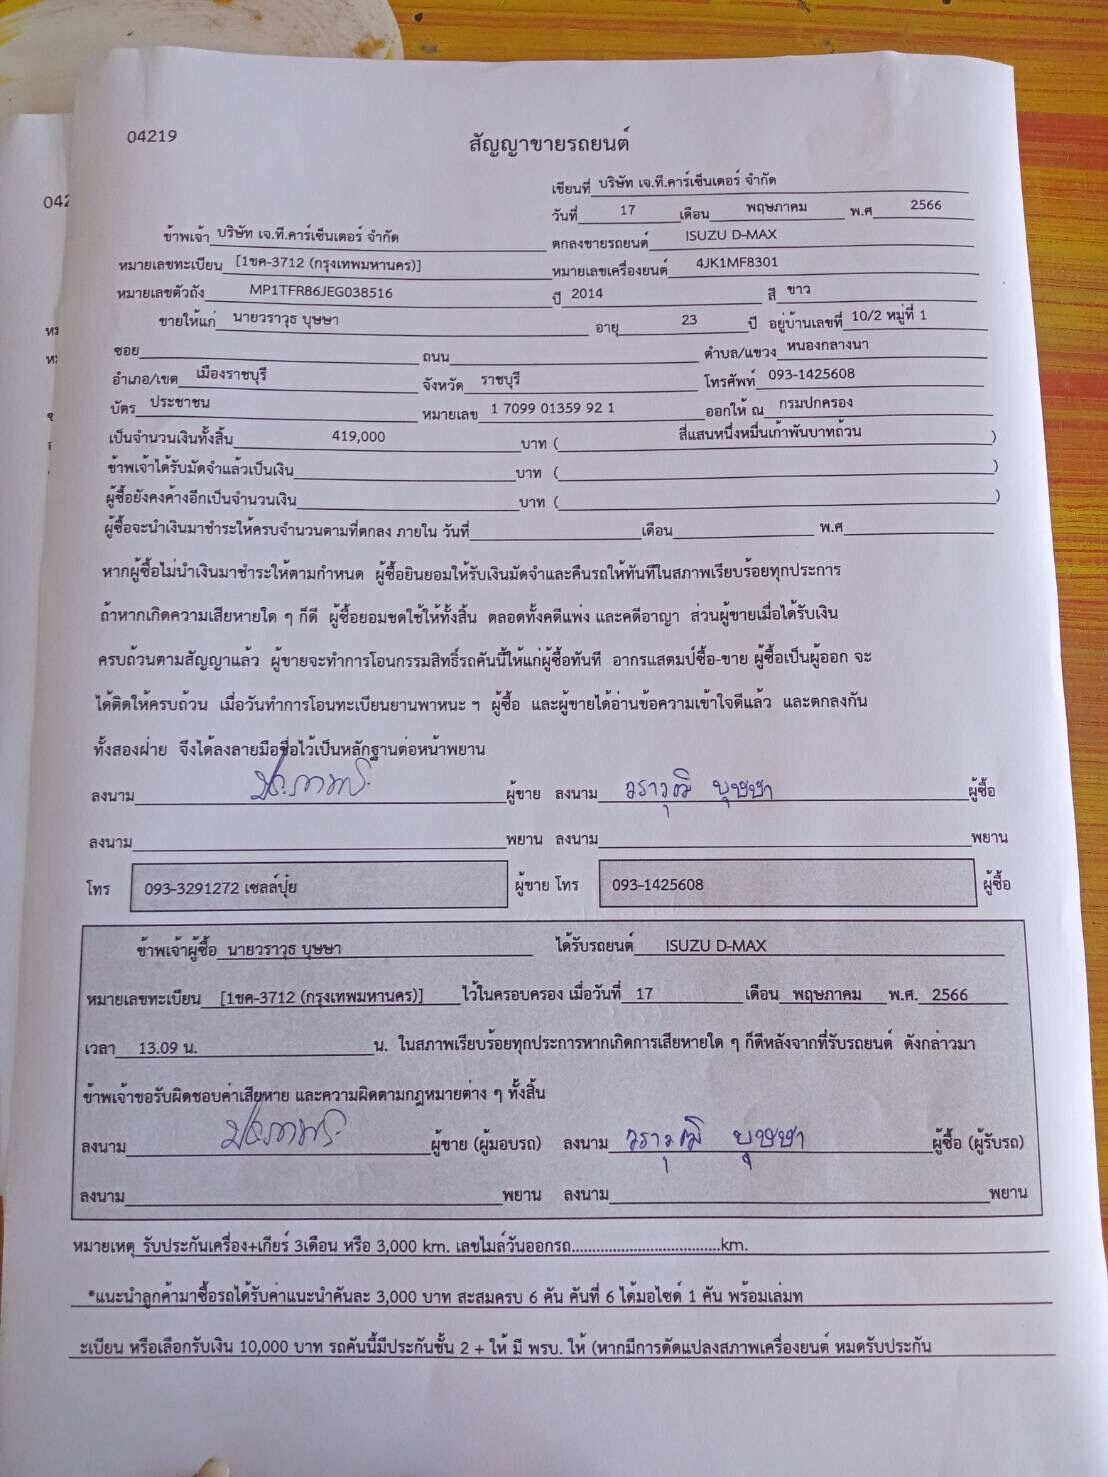 04219
สัญญาขายรถยนต์
เขียนที่ บริษัท เจ.ที.คาร์เซ็นเตอร์ จำกัด
วันที่ 17 เดือน พฤษภาคม พ.ศ 2566
ข้าพเจ้า บริษัท เจ.ที.คาร์เซ็นเตอร์ จำกัด ตกลงขายรถยนต์ ISUZU D-MAX
หมายเลขทะเบียน [1ขค-3712 (กรุงเทพมหานคร)] หมายเลขเครื่องยนต์ 4JK1MF8301
หมายเลขตัวถัง MP1TFR86JEG038516 ปี 2014 สี ขาว
ขายให้แก่ นายวราวุธ บุษษา อายุ 23 ปี อยู่บ้านเลขที่ 10/2 หมู่ที่ 1
ซอย ถนน ตำบล/แขวง หนองกลางนา
อำเภอ/เขต เมืองราชบุรี จังหวัด ราชบุรี โทรศัพท์ 093-1425608
บัตร ประชาชน หมายเลข 1 7099 01359 92 1 ออกให้ ณ กรมปกครอง
เป็นจำนวนเงินทั้งสิ้น 419,000 บาท ( สี่แสนหนึ่งหมื่นเก้าพันบาทถ้วน )
ข้าพเจ้าได้รับมัดจำแล้วเป็นเงิน บาท ( )
ผู้ซื้อยังคงค้างอีกเป็นจำนวนเงิน บาท ( )
ผู้ซื้อจะนำเงินมาชำระให้ครบจำนวนตามที่ตกลง ภายใน วันที่ เดือน พ.ศ
หากผู้ซื้อไม่นำเงินมาชำระให้ตามกำหนด ผู้ซื้อยินยอมให้รับเงินมัดจำและคืนรถให้ทันทีในสภาพเรียบร้อยทุกประการ
ถ้าหากเกิดความเสียหายใด ๆ ก็ดี ผู้ซื้อยอมชดใช้ให้ทั้งสิ้น ตลอดทั้งคดีแพ่ง และคดีอาญา ส่วนผู้ขายเมื่อได้รับเงิน
ครบถ้วนตามสัญญาแล้ว ผู้ขายจะทำการโอนกรรมสิทธิ์รถคันนี้ให้แก่ผู้ซื้อทันที อากรแสตมป์ซื้อ-ขาย ผู้ซื้อเป็นผู้ออก จะ
ได้ติดให้ครบถ้วน เมื่อวันทำการโอนทะเบียนยานพาหนะ ฯ ผู้ซื้อ และผู้ขายได้อ่านข้อความเข้าใจดีแล้ว และตกลงกัน
ทั้งสองฝ่าย จึงได้ลงลายมือชื่อไว้เป็นหลักฐานต่อหน้าพยาน
ลงนาม ผู้ขาย ลงนาม วราวุฒิ บุษษา ผู้ซื้อ
ลงนาม พยาน ลงนาม พยาน
โทร 093-3291272 เซลล์ปุ้ย ผู้ขาย โทร 093-1425608 ผู้ซื้อ
ข้าพเจ้าผู้ซื้อ นายวราวุธ บุษษา ได้รับรถยนต์ ISUZU D-MAX
หมายเลขทะเบียน [1ขค-3712 (กรุงเทพมหานคร)] ไว้ในครอบครอง เมื่อวันที่ 17 เดือน พฤษภาคม พ.ศ. 2566
เวลา 13.09 น. น. ในสภาพเรียบร้อยทุกประการหากเกิดการเสียหายใด ๆ ก็ดีหลังจากที่รับรถยนต์ ดังกล่าวมา
ข้าพเจ้าขอรับผิดชอบค่าเสียหาย และความผิดตามกฎหมายต่าง ๆ ทั้งสิ้น
ลงนาม ผู้ขาย (ผู้มอบรถ) ลงนาม วราวุฒิ บุษษา ผู้ซื้อ (ผู้รับรถ)
ลงนาม พยาน ลงนาม พยาน
หมายเหตุ รับประกันเครื่อง+เกียร์ 3เดือน หรือ 3,000 km. เลขไมล์วันออกรถ....................................km.
*แนะนำลูกค้ามาซื้อรถได้รับค่าแนะนำคันละ 3,000 บาท สะสมครบ 6 คัน คันที่ 6 ได้มอไซด์ 1 คัน พร้อมเล่มท
ะเบียน หรือเลือกรับเงิน 10,000 บาท รถคันนี้มีประกันชั้น 2 + ให้ มี พรบ. ให้ (หากมีการดัดแปลงสภาพเครื่องยนต์ หมดรับประกัน